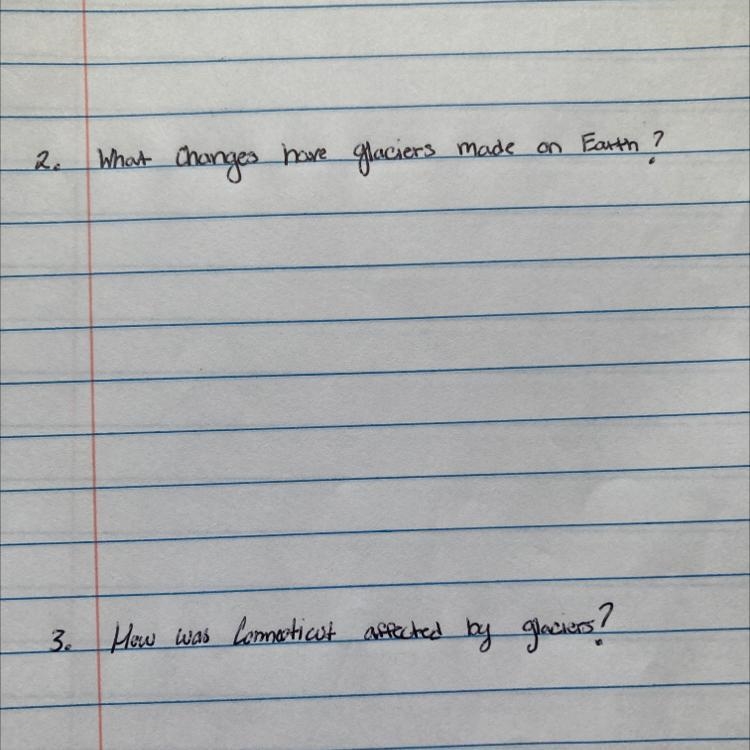 2. What changes have glaciers made on Earth?
3. How was Connecticut affected by glaciers?